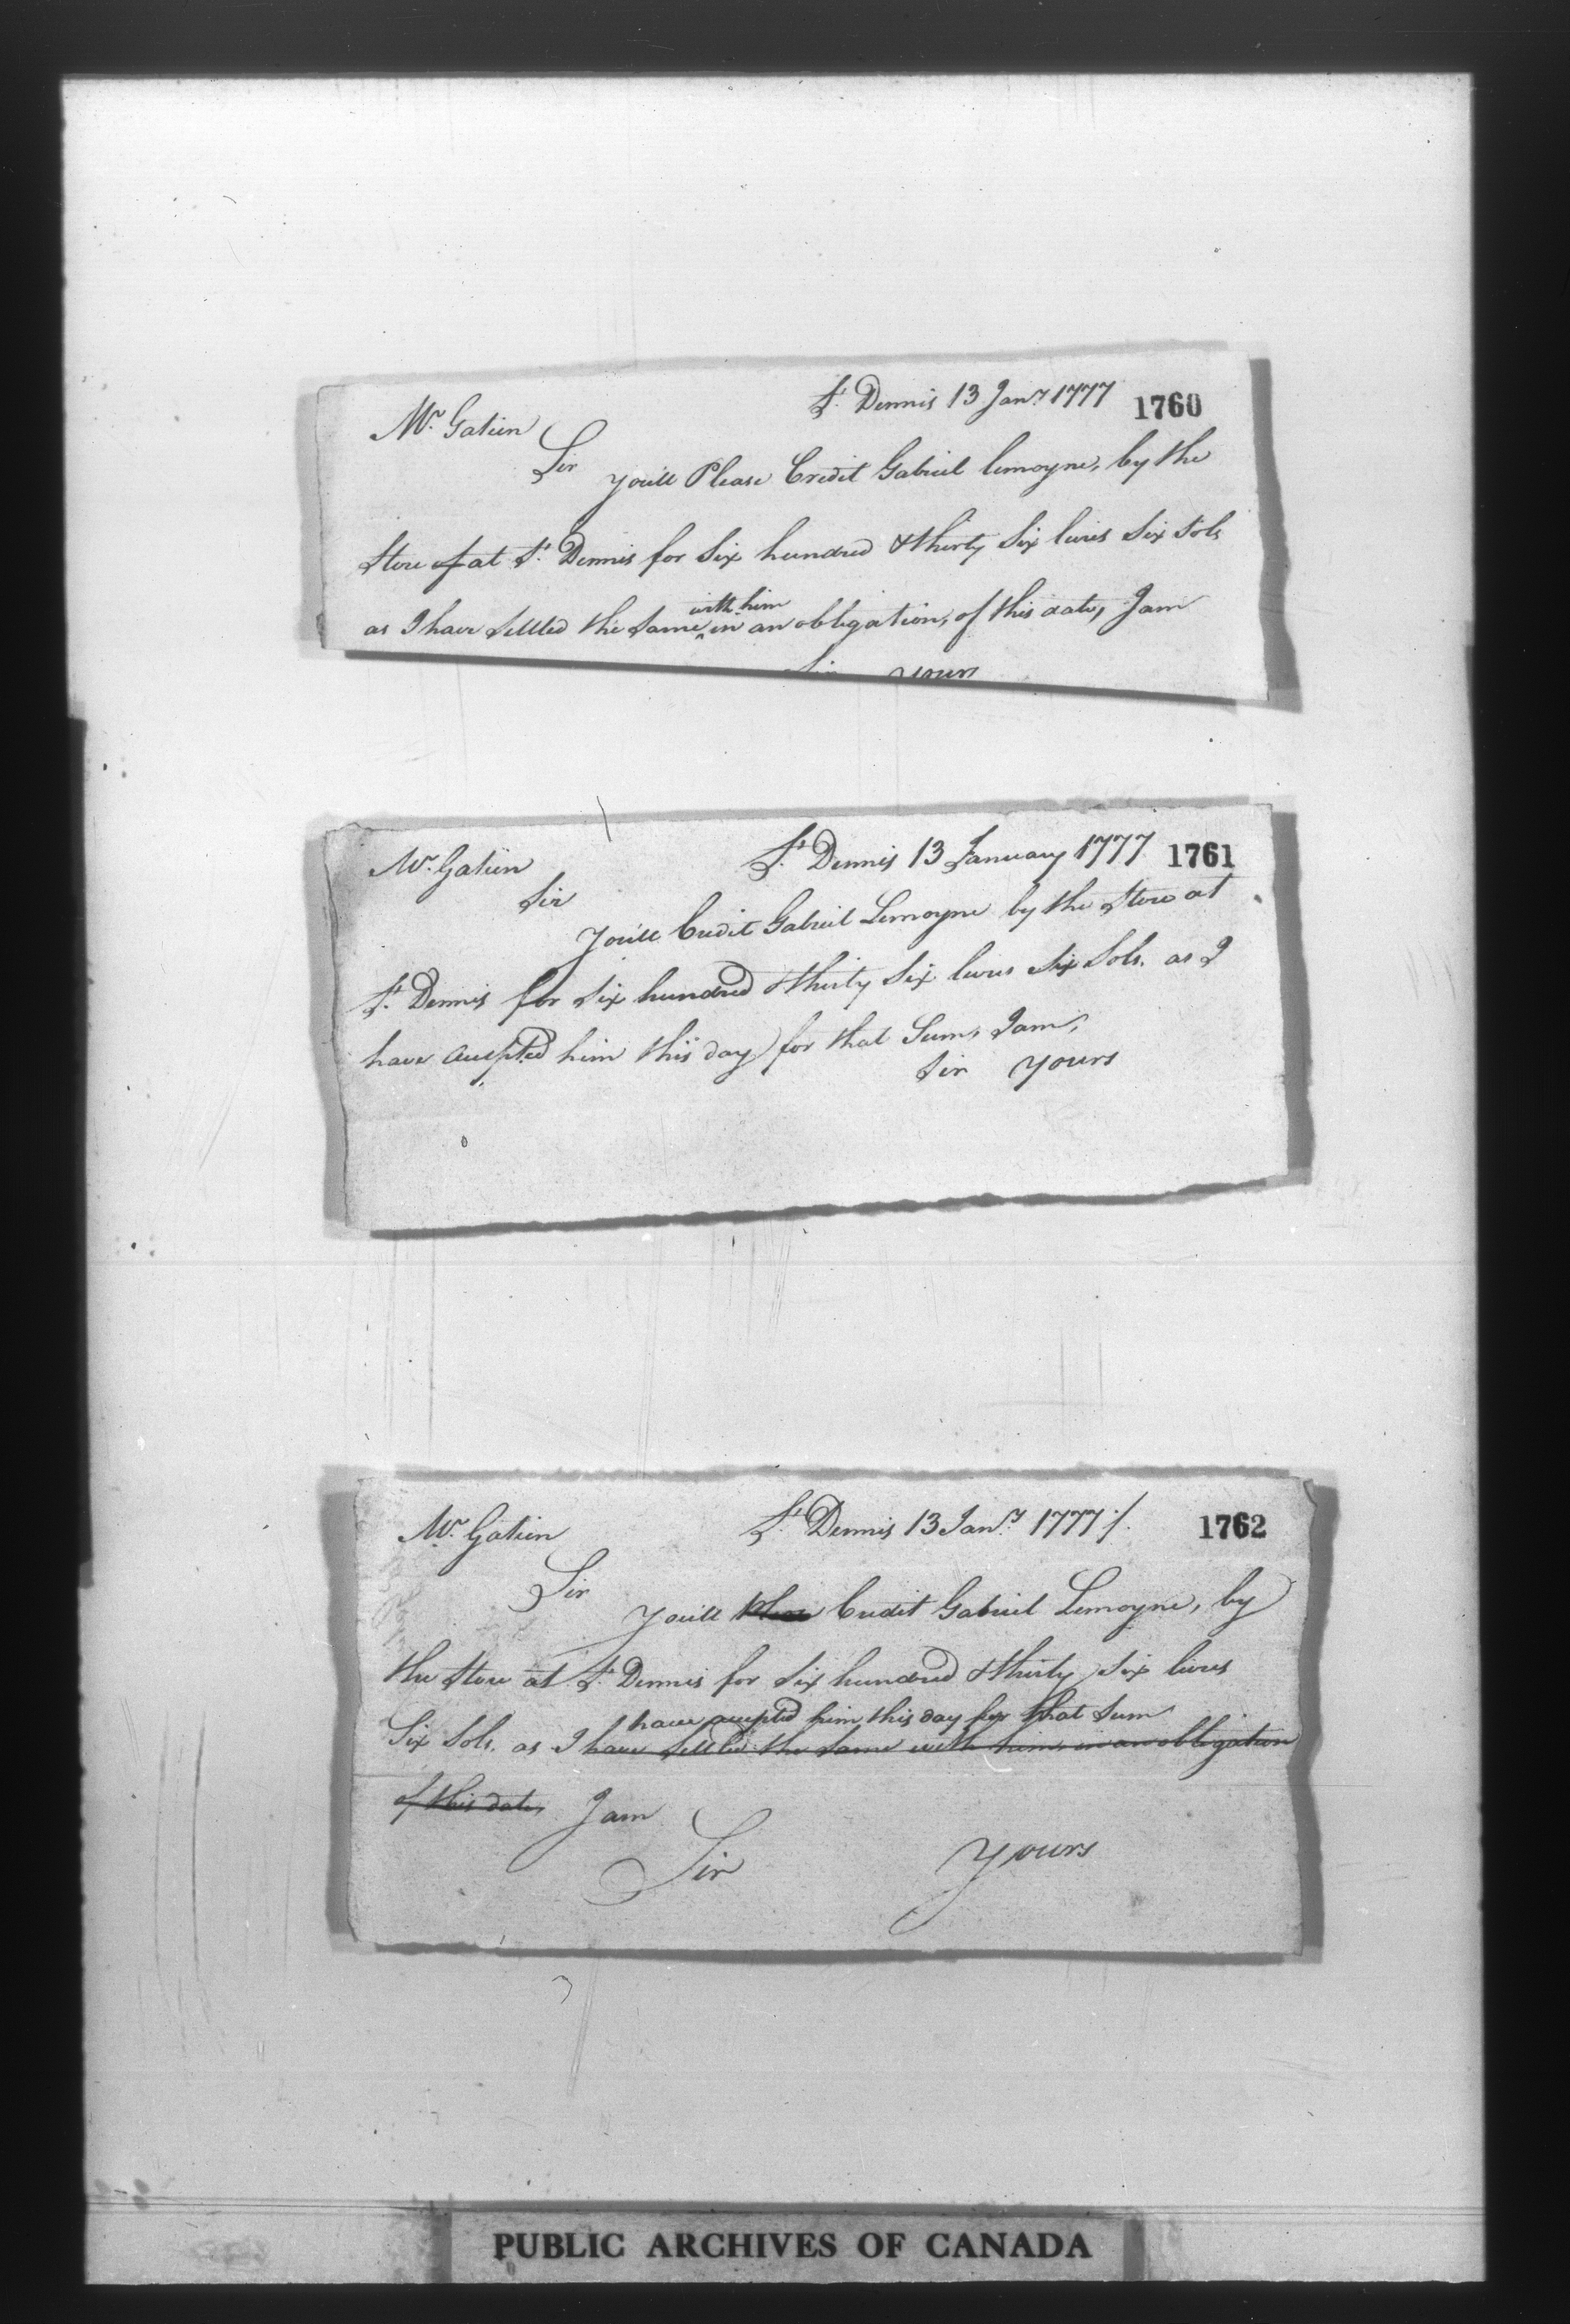 St. Dennis 13 Jany. 1777 1760
Mr. Gatien
Sir
you'll Please Credit Gabriel lemoyne, by the
Store of at St. Dennis for Six hundred & thirty Six livres Six Sols
with him
as I have Settled the Same in an obligation, of this date, I am
Sir yours
St. Dennis 13 January 1777 1761
Mr. Gatien
Sir
You'll Credit Gabriel Lemoyne by the Store at
St. Dennis for Six hundred & thirty Six livres Six Sols. as I
have accepted him this day for that Sum, I am,
Sir yours
St. Dennis 13 Jany. 1777 /. 1762
Mr. Gatien
Sir
You'll Please Credit Gabriel Lemoyne, by
the Store at St. Dennis for Six hundred & thirty Six livres
have accepted him this day for that Sum
Six Sols. as I have Settled the Same with him in an obligation
of this date, I am
Sir yours
PUBLIC ARCHIVES OF CANADA